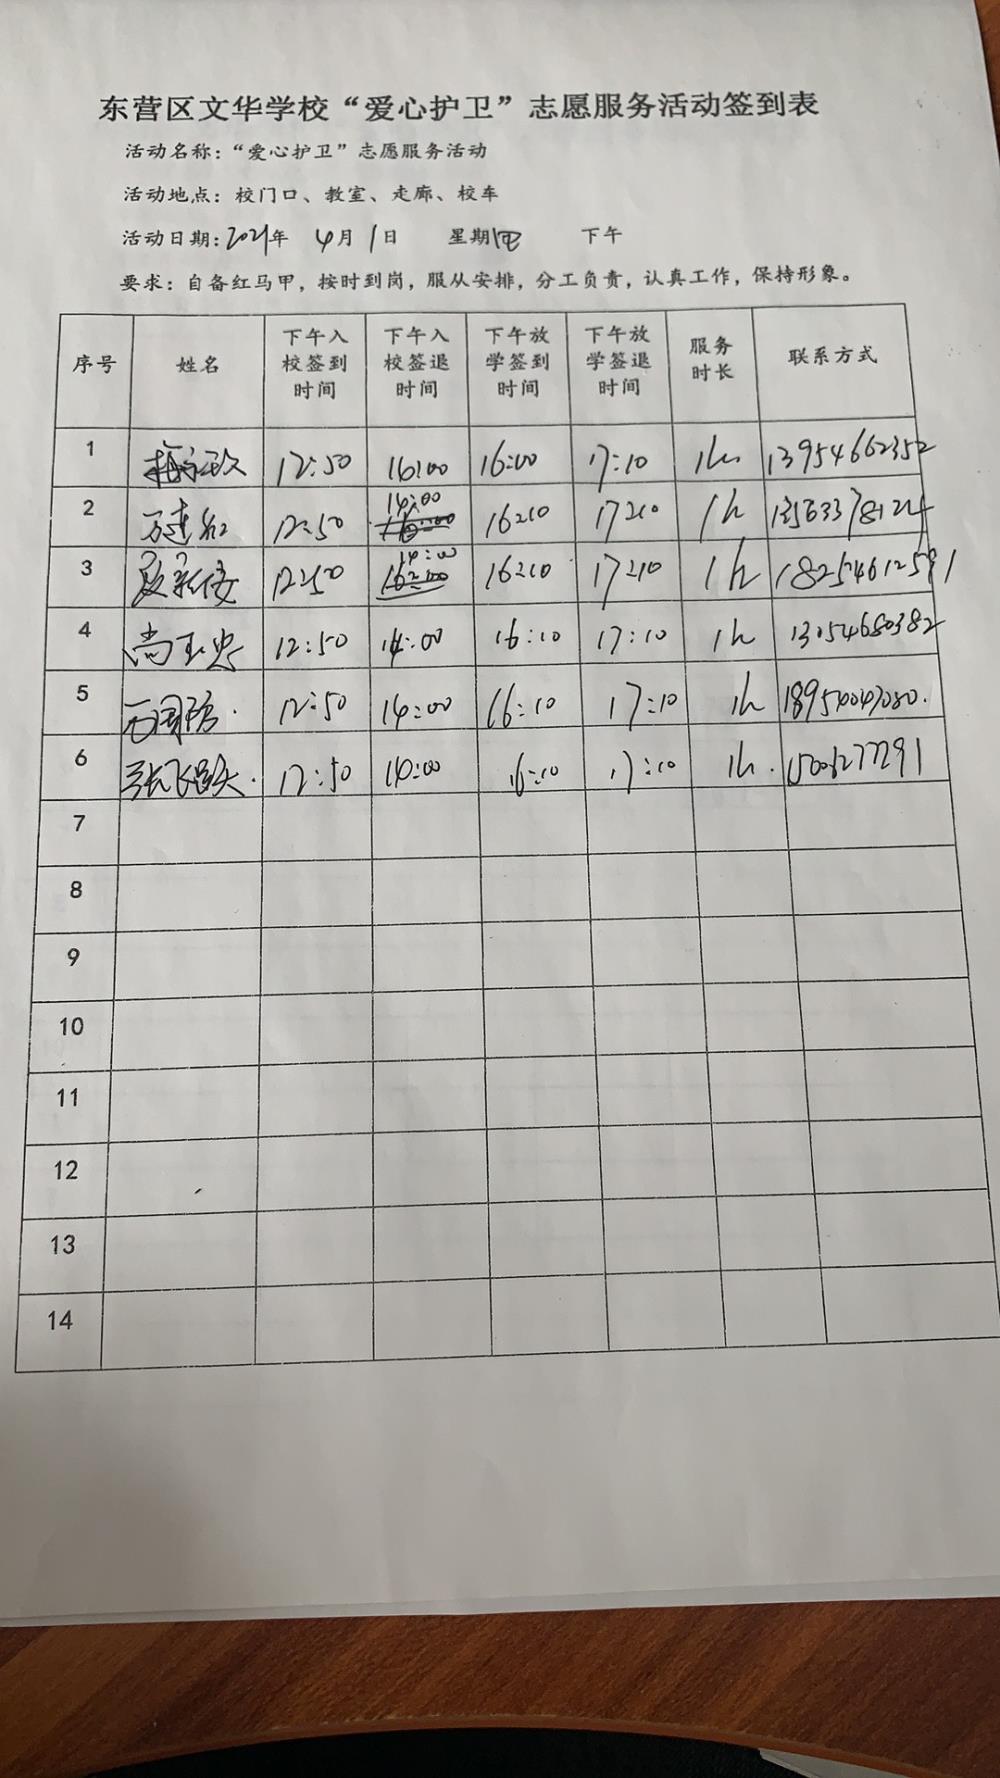 东营区文华学校“爱心护卫”志愿服务活动签到表
活动名称：“爱心护卫”志愿服务活动
活动地点：校门口、教室、走廊、校车
活动日期：2021年 4月 1日 星期四 下午
要求：自备红马甲，按时到岗，服从安排，分工负责，认真工作，保持形象。
序号 姓名 下午入校签到时间 下午入校签退时间 下午放学签到时间 下午放学签退时间 服务时长 联系方式
1 12:50 16:00 16:00 17:10 1h 13954662352
2 12:50 14:00 16:10 17:10 1h
3 12:50 14:00 16:10 17:10 1h 18254612591
4 尚玉忠 12:50 14:00 16:10 17:10 1h 13054680382
5 12:50 14:00 16:10 17:10 1h 18954047080.
6 12:50 14:00 16:10 17:10 1h. 15006277291
7
8
9
10
11
12
13
14